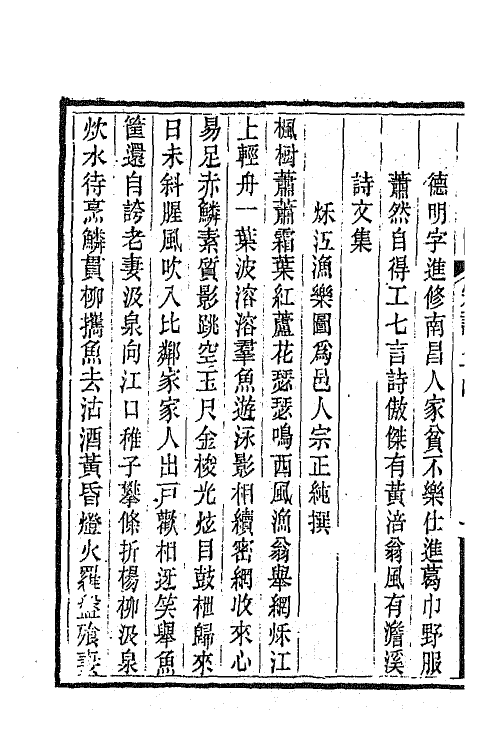 德明字進修南昌人家貧不樂仕進葛巾野服
蕭然自得工七言詩傲傑有黃涪翁風有澹溪
詩文集
烁江漁樂圖爲邑人宗正純撰
楓樹蕭蕭霜葉紅蘆花瑟瑟鳴西風漁翁舉網烁江
上輕舟一葉波溶溶羣魚遊泳影相續密網收來心
易足赤鱗素質影跳空玉尺金梭光炫目鼓枻歸來
日未斜腥風吹入比鄰家家人出戸歡相迓笑舉魚
筐還自誇老妻汲泉向江口稚子攀條折楊柳汲泉
炊水待烹鱗貫柳攜魚去沽酒黃昏燈火羅盤飱